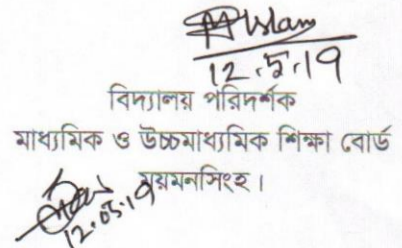 M Islam
12.5.19
বিদ্যালয় পরিদর্শক
মাধ্যমিক ও উচ্চমাধ্যমিক শিক্ষা বোর্ড
ময়মনসিংহ।
12.05.19